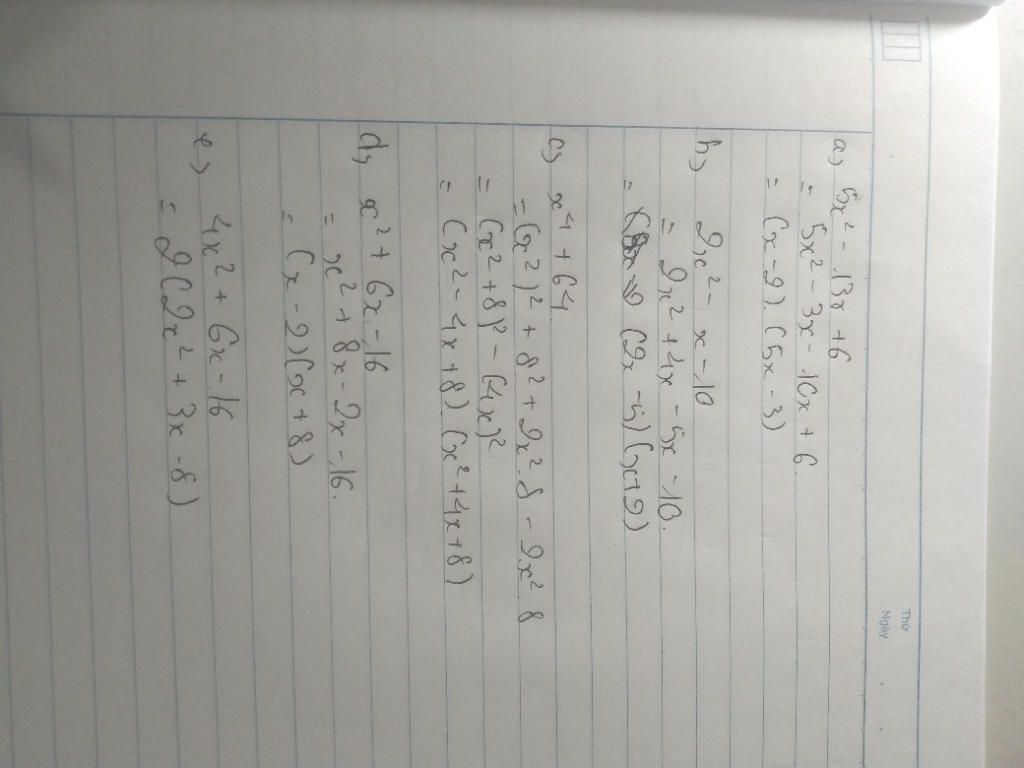 Thứ
Ngày
a) 5x² - 13x + 6
= 5x² - 3x - 10x + 6
= (x - 2). (5x - 3)
b) 2x² - x - 10
= 2x² + 4x - 5x - 10.
= (2x - 5) (x + 2)
c) x⁴ + 64
= (x²)² + 8² + 2x².8 - 2x².8
= (x² + 8)² - (4x)²
= (x² - 4x + 8). (x² + 4x + 8)
d) x² + 6x - 16
= x² + 8x - 2x - 16.
= (x - 2)(x + 8)
e) 4x² + 6x - 16
= 2(2x² + 3x - 8)